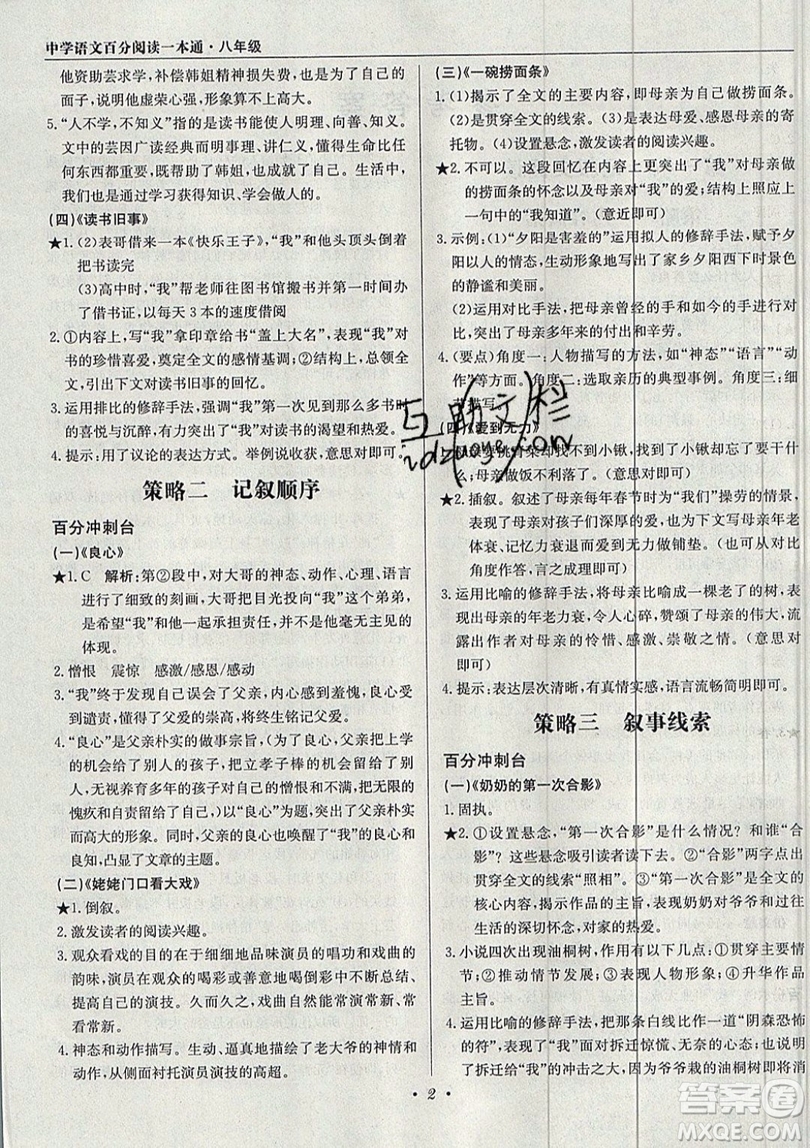 中学语文百分阅读一本通·八年级
他资助芸求学，补偿韩姐精神损失费，是为了自己的
面子，说明他虚荣心强，形象算不上高大。
5. “人不学，不知义”指的是读书能使人明理、向善、知义。
文中的芸因广读经典而明事理、讲仁义，懂得生命比任
何东西都重要，既帮助了韩姐，又影响了其他人。因此，
我们也是通过学习获得知识、学会做人的。
(四)《读书旧事》
★1. (2)表哥借来一本《快乐王子》，“我”和他头顶头倒着
把书读完
(3)高中时，“我”帮老师往图书馆搬书并第一时间办
了借书证，以每天3本的速度借阅
2. ①内容上，写“我”拿印章给书“盖上大名”，表现“我”对
书的珍惜喜爱，奠定全文的感情基调；②结构上，自然
引出下文对读书旧事的回忆。
3. 运用排比的修辞手法，强调“我”第一次见到那么多书时
的喜悦与沉醉，有力突出了“我”对读书的渴望和热爱。
4. 提示：用了议论的表达方式。举例说说收获即可。
策略二 记叙顺序
百分冲刺台
(一)《良心》
★1. C 解析：第②段中，对大哥的神态、动作、心理、语言
进行了细致的刻画，大哥把目光投向“我”这个弟弟，
是希望“我”和他一起承担责任，并不是他毫无主见的
体现。
2. 憎恨 震惊 感激/感恩/感动
3. “我”终于发现自己误会了父亲，内心感到羞愧，良心受
到谴责，懂得了父爱的崇高，将终生铭记父爱。
4. “良心”是父亲朴实的做事宗旨，“我们”不是父亲亲生
的，父亲却凭着良心，把立孝子棒的机会让给别人，无
怨无悔养育了多年，表现出对儿女的憎恨和自己的无限
愧疚和自责留给了自己，以“良心”为标题，突出了父亲朴实
而高大的形象。同时，父亲的良心也唤醒了“我”的良心和
良知，凸显了文章的主题。
(二)《姥姥门口看大戏》
★1. 倒叙。
2. 激发读者的阅读兴趣。
3. 观众看戏的目的在于细细地品味演员的唱功和戏曲的
韵味，演员在观众的喝彩或善意的倒彩中能不断总结，
提高自己的演技。久而久之，自然能常演常新、常
看常新。
4. 神态和动作描写。生动、逼真地写出了老大爷的神情和
动作，从侧面衬托演员演技的高超。
(三)《一碗捞面条》
1. (1)揭示了全文的主要内容，即母亲为自己做捞面条。
(2)是贯穿全文的线索。(3)是表达母爱、感恩母亲的寄
托物。(4)设置悬念，激发读者的阅读兴趣。
★2. 不可以。这段回忆在内容上突出了“我”对母亲做
的捞面条的怀念以及母亲对“我”的爱；结构上照应上
一句中的“我知道”。(意思对即可)
3. 示例：(1)“夕阳是害羞的”运用拟人的修辞手法，赋予夕
阳以人的情态，生动形象地写出了家乡夕阳西下时景色
的静谧和美丽。
(2)运用对比手法，把母亲曾经的手和如今的手进行对
比，突出了母亲多年来的付出和辛劳。
4. (要点)角度一：人物描写的方法，如“神态”“语言”“动
作”等方面。角度二：选取亲历的典型事例。角度三：细
节描写。
(四)《爱到无力》
1. 母亲做饭不利落了。
★2. 插叙。叙述了母亲每年春节为“我们”操劳的情景，
表现了母亲对孩子们深厚的爱，也为下文写母亲年老
体衰、记忆力衰退而爱无力做铺垫。(从内容和结构
角度作答，意思对即可)
3. 运用比喻的修辞手法，将母亲比喻成一棵老了的树，表
现出母亲的年老力衰，令人心碎，赞颂了母亲的伟大，流
露出作者对母亲的怜惜、感激、崇敬之情。(意思对
即可)
4. 提示：表达层次清晰，有真情实感，语言流畅简明即可。
策略三 叙事线索
百分冲刺台
(一)《奶奶的第一次合影》
1. 固执。
★2. ①设置悬念，“第一次合影”是什么情况？和谁“合
影”？吸引读者阅读下去。②“合影”两字点出
贯穿全文的线索“照相”。③“合影”是全文的核心，
揭示作品的主旨，表现奶奶对爷爷和对过往
生活的深切怀念，对家的热爱。
3. 小说四次出现油桐树，有以下几点作用：①贯穿事件情
节；②推动情节发展；③表现人物形象；④升华作品
主旨。
4. 运用比喻的修辞手法，把那条白线比作一道“阴森恐怖
的符”，写出了奶奶对这条白线的恐惧与无奈，更直白地
说明了拆迁给人的冲击之大，爷爷的油桐树即将消
· 2 ·
互助文栏
答案圈
MXQE.COM